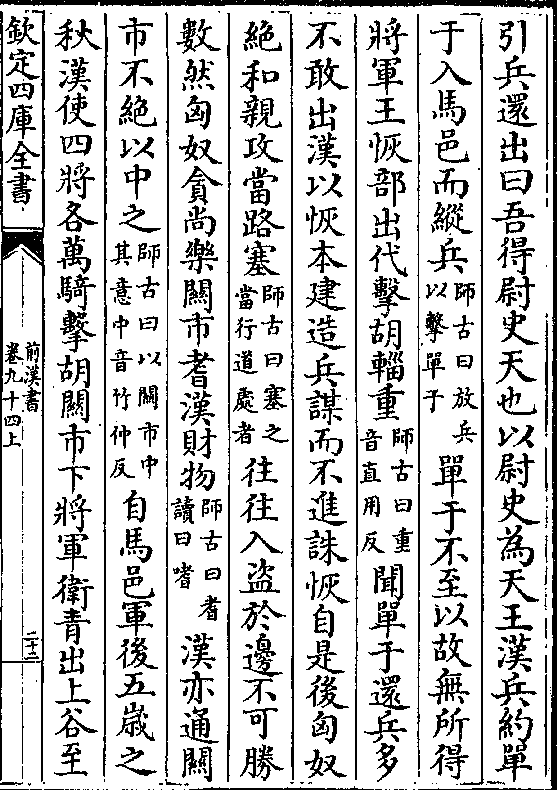 引兵還出曰吾得尉史天也以尉史為天王漢兵約單
于入馬邑而縱兵師古曰放兵以擊單于單于不至以故無所得
將軍王恢部出代擊胡輜重師古曰重音直用反聞單于還兵多
不敢出漢以恢本建造兵謀而不進誅恢自是後匈奴
絶和親攻當路塞師古曰塞之當行道處者往往入盜於邊不可勝
數然匈奴貪尚樂關市耆漢財物師古曰耆讀曰嗜漢亦通關
市不絶以中之師古曰以關市中其意中音竹仲反自馬邑軍後五歲之
秋漢使四將各萬騎擊胡關市下將軍衛青出上谷至
欽定四庫全書
前漢書
卷九十四上
二十二